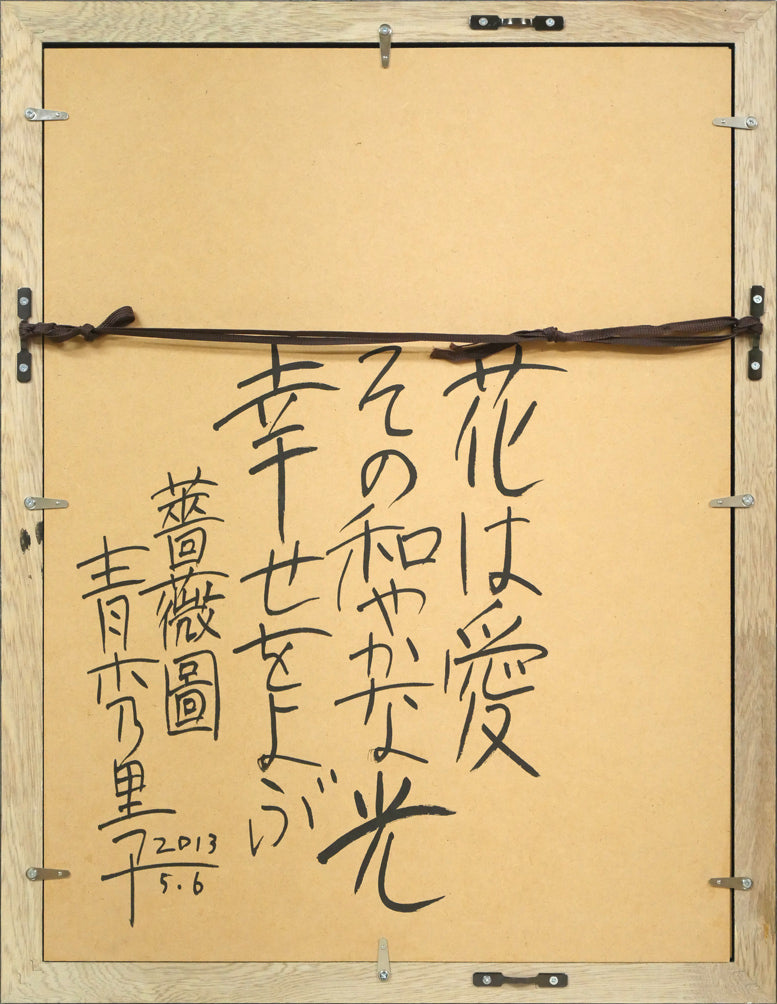 花は愛
その和やかな光
幸せをよぶ
薔薇圖
青秀里子
2013
5.6